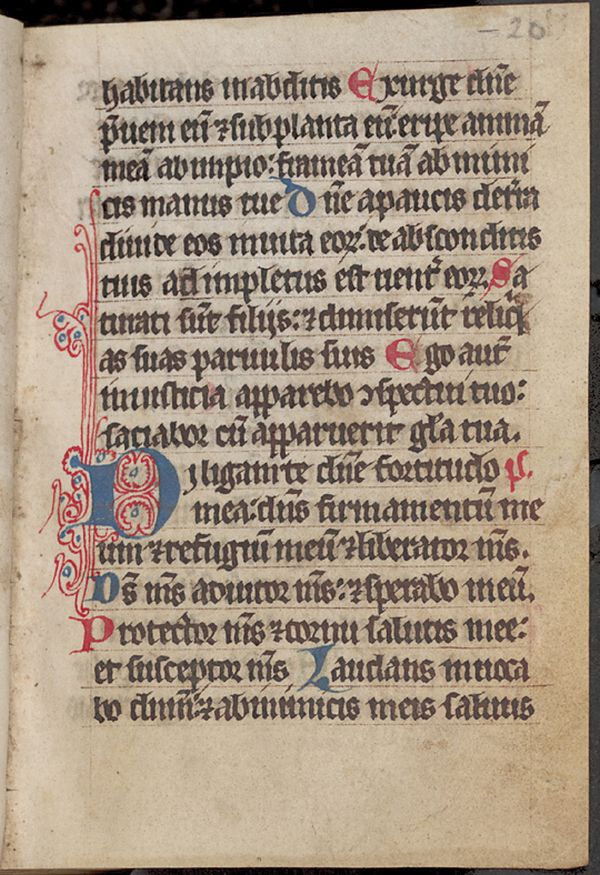 20
habitans in abditis Exurge dn̄e
p̄ueni eū ⁊ subplanta eū eripe animā
meā ab impio: frameā tuā ab inimi
cis manus tue Dn̄e a paucis de tr̄a
diuide eos in uita eoꝝ: de absconditis
tuis ad impletus est uent᷒ eoꝝ. Sa
turati sūt filijs: ⁊ dimiserūt reliq̄
as suas paruulis suis Ego aut̄
in iusticia apparebo ↄspectui tuo:
saciabor cū apparuerit gl̄a tua.
Dyligam te dn̄e fortitudo ps.
mea: dn̄s firmamentū me
um ⁊ refugiū meū ⁊ liberator mс̄s.
Ds̄ ms̄ adiutor ms̄: ⁊ sperabo ī eū.
Protector ms̄ ⁊ cornu salutis mee:
et susceptor ms̄ Laudans inuoca
bo dn̄m: ⁊ ab inimicis meis saluus